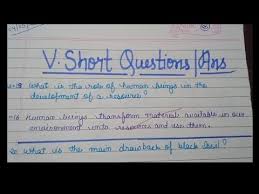 V. Short Questions | Ans
What is the role of human beings in the
development of a resource?
Human beings transform material available in our
environment into resources and use them.
What is the main drawback of black soil?